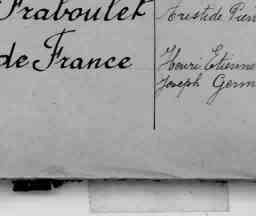 Fraboulet
de France
Aristide Pier
Henri Etienne
Joseph Germ